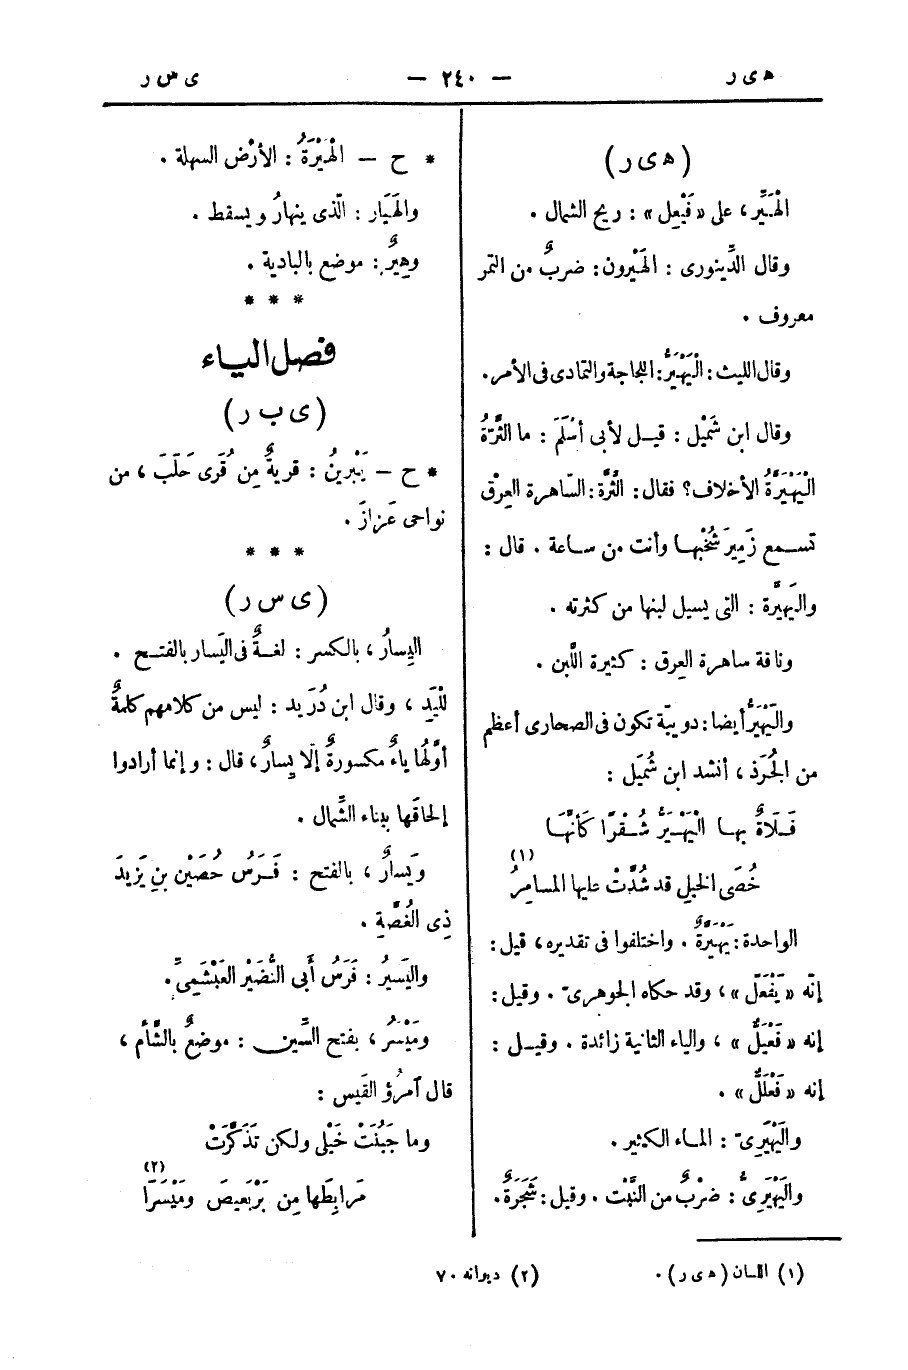 ه ی ر — ٢٤٠ — ی س ر
(ه ی ر)
الهَيِّر، على «فَيْعِل» : ريح الشمال .
وقال الدِّينورى : الهَيْرون : ضربٌ من التمر
معروف .
وقال الليث : الْيَهْيَرُّ : اللجاجة والتمادى فى الأمر.
وقال ابن شُمَيْل : قيل لأبى أَسْلَمَ : ما الثَّرَّةُ
الْيَهْيَرَّةُ الأخلاف؟ فقال : الثَّرَّة : السّاهرة العِرْق
تسمع زَمِيرَ شُخْبِها وأنت من ساعة . قال :
واليَهْيَرَّة : التى يسيل لبنها من كثرته .
وناقة ساهرة العرق : كثيرة اللَّبن .
واليَهْيَرُّ أيضا : دويبّة تكون فى الصحارى أعظم
من الجُرَذ ، أنشد ابن شُمَيل :
فَلَاةٌ بها الْيَهْيَرُّ شُقْرًا كَأَنَّها
خُصَى الخيلِ قد شُدَّتْ عليها المسامِرُ (١)
الواحدة : يَهْيَرَّةٌ . واختلفوا فى تقديره، قيل :
إنّه «يَفْعَلّ» ، وقد حكاه الجوهرىّ . وقيل :
إنه «فَعْيَلٌّ» ، والياء الثانية زائدة . وقيل :
إنه «فَعْلَلٌّ» .
واليَهْيَرىّ : الماء الكثير .
واليَهْيَرىُّ : ضرْبٌ من النَّبْت . وقيل : شَجَرَةٌ .
* ح – الْهَيْرَةُ : الأرْض السهلة .
والهَيَار : الّذى ينهارُ ويسقط .
وهِيرٌ : موضع بالبادية .
* * *
فصل الياء
(ی ب ر)
* ح – يَبْرِينُ : قريةٌ مِن قُرَى حَلَبَ ، من
نواحى عَزازَ .
* * *
(ی س ر)
اليِسارُ ، بالكسر : لغةٌ فى اليَسار بالفتح .
لِلْيَدِ ، وقال ابن دُرَيد : ليس من كلامهم كلمةٌ
أوّلُها ياءٌ مكسورةٌ إلّا يِسارٌ ، قال : وإنما أرادوا
إلحاقها ببناء الشِّمال .
ويَسارٌ ، بالفتح : فَرَسُ حُصَيْن بنِ يَزِيدَ
ذِى الغُصَّةِ .
واليَسيرُ : فَرَسُ أَبى النُّضَيْر العَبْشَمِىّ .
ومَيْسَرٌ ، بفتح السِّين : موضعٌ بالشَّأم ،
قال آمرؤُ القَيس :
وما جَبُنَتْ خَيْلى ولكن تَذَكَّرَتْ
مَرابِطَها مِن بَرْبَعيصَ ومَيْسَرَا (٢)
(١) اللسان (ه ی ر) . (٢) ديوانه ٧٠